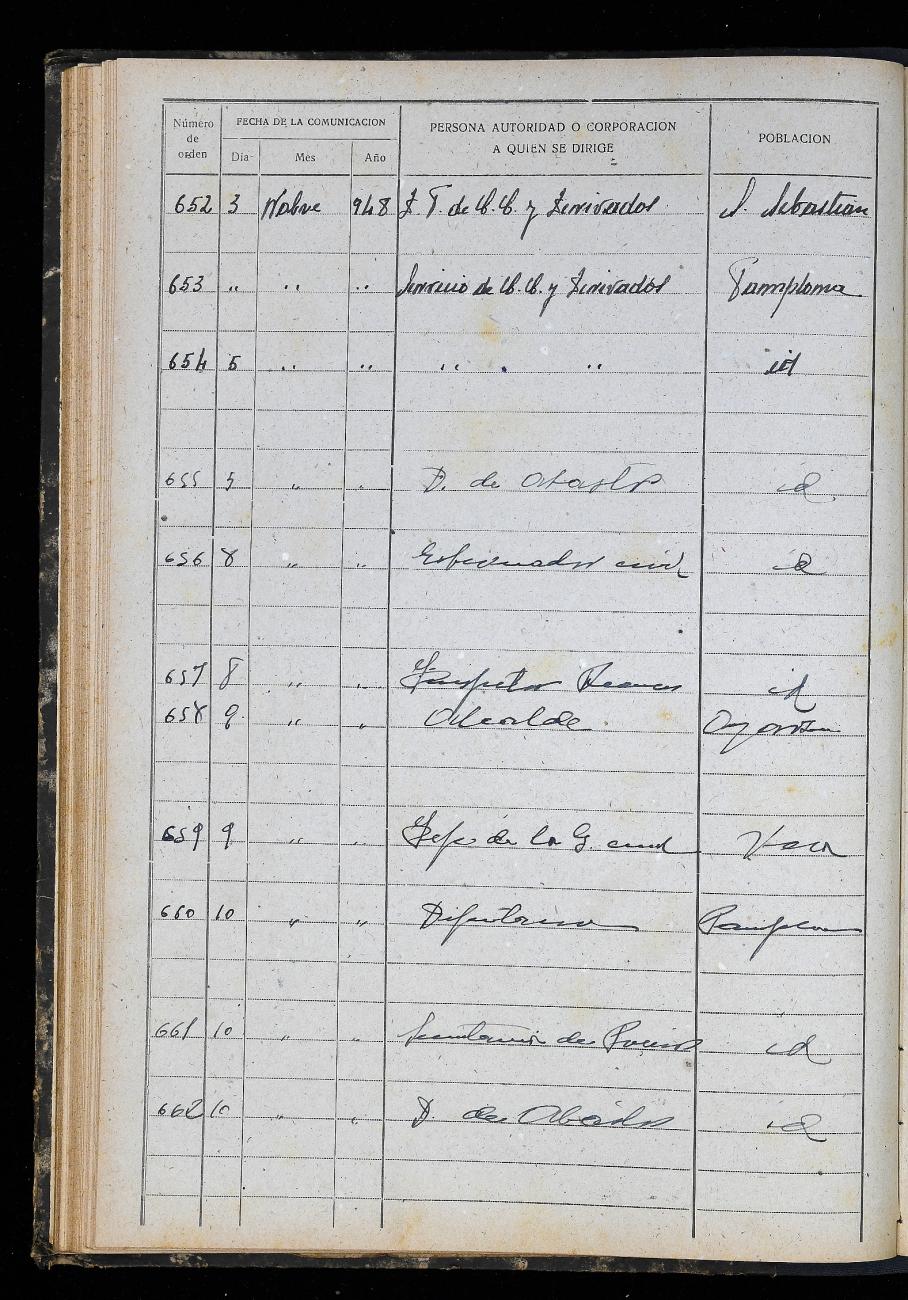 Número de orden
FECHA DE LA COMUNICACION
Día Mes Año
PERSONA AUTORIDAD O CORPORACION
A QUIEN SE DIRIGE
POBLACION
652 3 Nobre 948 J. T. de C. C. y Derivados S. Sebastian
653 " " " Servicio de C. C. y Derivados Pamplona
654 5 " " " " id
655 5 " " D. de Abastos id
656 8 " " Gobernador civil id
657 8 " " Inspector id
658 9 " " Alcalde Oyarzun
659 9 " " Jefe de la G. civil Vera
660 10 " " Diputacion Pamplona
661 10 " " de id
662 10 " " D. de Abastos id